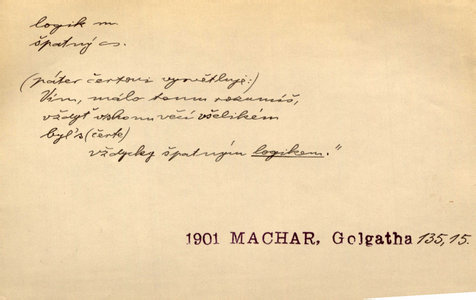 logik m.
špatný cs.
(páter čertovi vysvětluje:)
Vím, málo tomu rozumíš,
vždyť v oboru věcí všelikém
byl's (čerte)
vždycky špatným logikem."
1901 MACHAR, Golgatha 135,15.